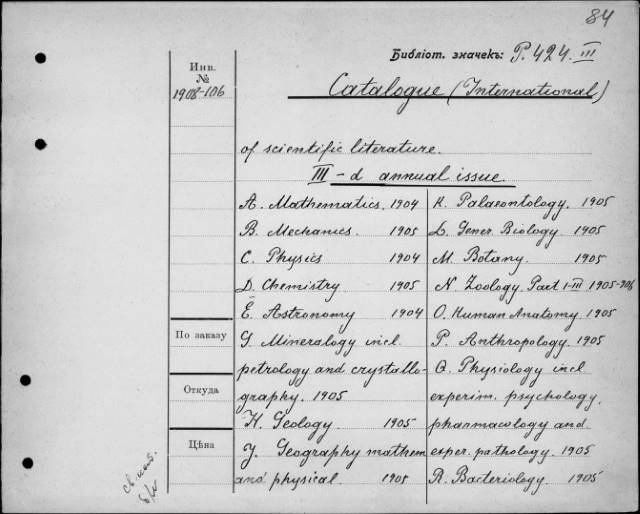 84
Библіот. значекъ: P. 424. III
Инв. №
1908-106
Catalogue (International)
of scientific literature.
III-d annual issue.
A. Mathematics. 1904
B. Mechanics. 1905
C. Physics 1904
D. Chemistry 1905
E. Astronomy 1904
G. Mineralogy incl.
petrology and crystallo-
graphy. 1905
H. Geology. 1905
J. Geography mathem
and physical. 1905
K. Palaeontology. 1905
L. Gener. Biology. 1905
M. Botany. 1905
N. Zoology. Part I-III 1905-906
O. Human Anatomy. 1905
P. Anthropology. 1905
Q. Physiology incl
experim. psychology,
pharmacology and
exper. pathology. 1905
R. Bacteriology. 1905
По заказу
Откуда
Цѣна